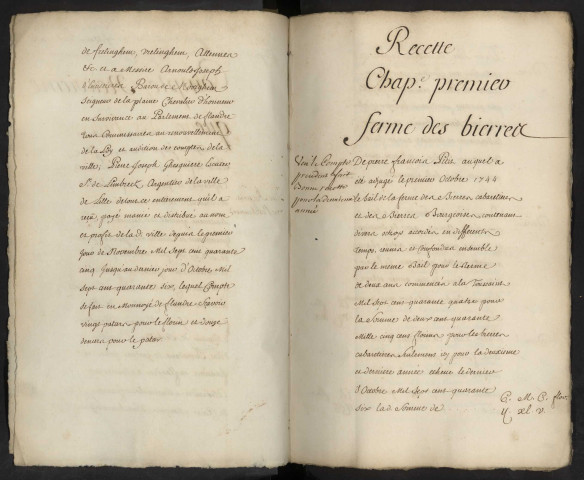 de frelinghem, verlinghem,
&c. et a Messire Arnould Joseph
Baron de
Seigneur de la plaine Chevalier d'honneur
en survivance au Parlement de flandre
tous Commissaires au renouvellement
de la Loy et audition des comptes de la
ville; Pierre Joseph Ghesquiere Ecuier
Sr. de Limbreck, Argentier de la ville
de Lille de tout ce entierement qu'il a
reçu, payé manié et distribué au nom
et profit de la de. ville depuis le premier
jour de Novembre Mil sept cens quarante
cinq jusqu'au dernier jour d'Octobre Mil
sept cens quarante six, lequel Compte
se fait en Monnoye de flandre a scavoir
vingt patars pour le florin et douze
deniers pour le patar
Recette
Chap.e premier
ferme des bierres
Veu le Compte
precedent fort
pour la deuxieme
année
De pierre francois auquel a
été adjugé le premier Octobre 1744
le bail de la ferme des Bierres cabaretieres
et des Bierres Bourgeoises contenant
divers octrois accordés en differens
temps, reunis et confondus ensemble
par le meme Bail pour le terme
de deux ans commencés a la Toussaint
Mil Sept cens quarante quatre pour
la Somme de deux cens quarante
Mille cinq cens florins pour les bierres
cabaretieres seulement icy pour la deuxieme
et derniere année echeue le dernier
d'Octobre Mil Sept cens quarante
six la de. Somme de
C. M. C. flor.
ij. xl. v.